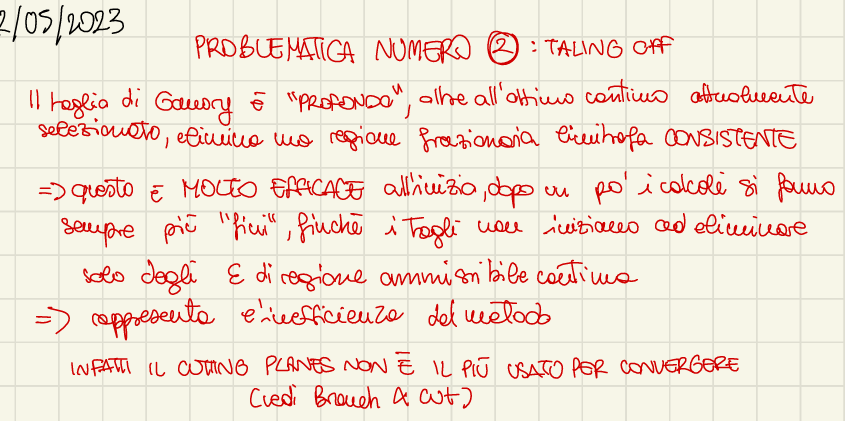 2/05/2023
PROBLEMATICA NUMERO 2 : TALING OFF
Il taglio di Gomory è "PROFONDO", oltre all'ottimo continuo attualmente
selezionato, elimina una regione frazionaria limitrofa CONSISTENTE
=> questo È MOLTO EFFICACE all'inizio, dopo un po' i calcoli si fanno
sempre più "fini", finchè i tagli non iniziano ad eliminare
solo degli ε di regione ammissibile continua
=> rappresenta l'inefficienza del metodo
INFATTI IL CUTTING PLANES NON È IL PIÙ USATO PER CONVERGERE
(vedi Branch & Cut)